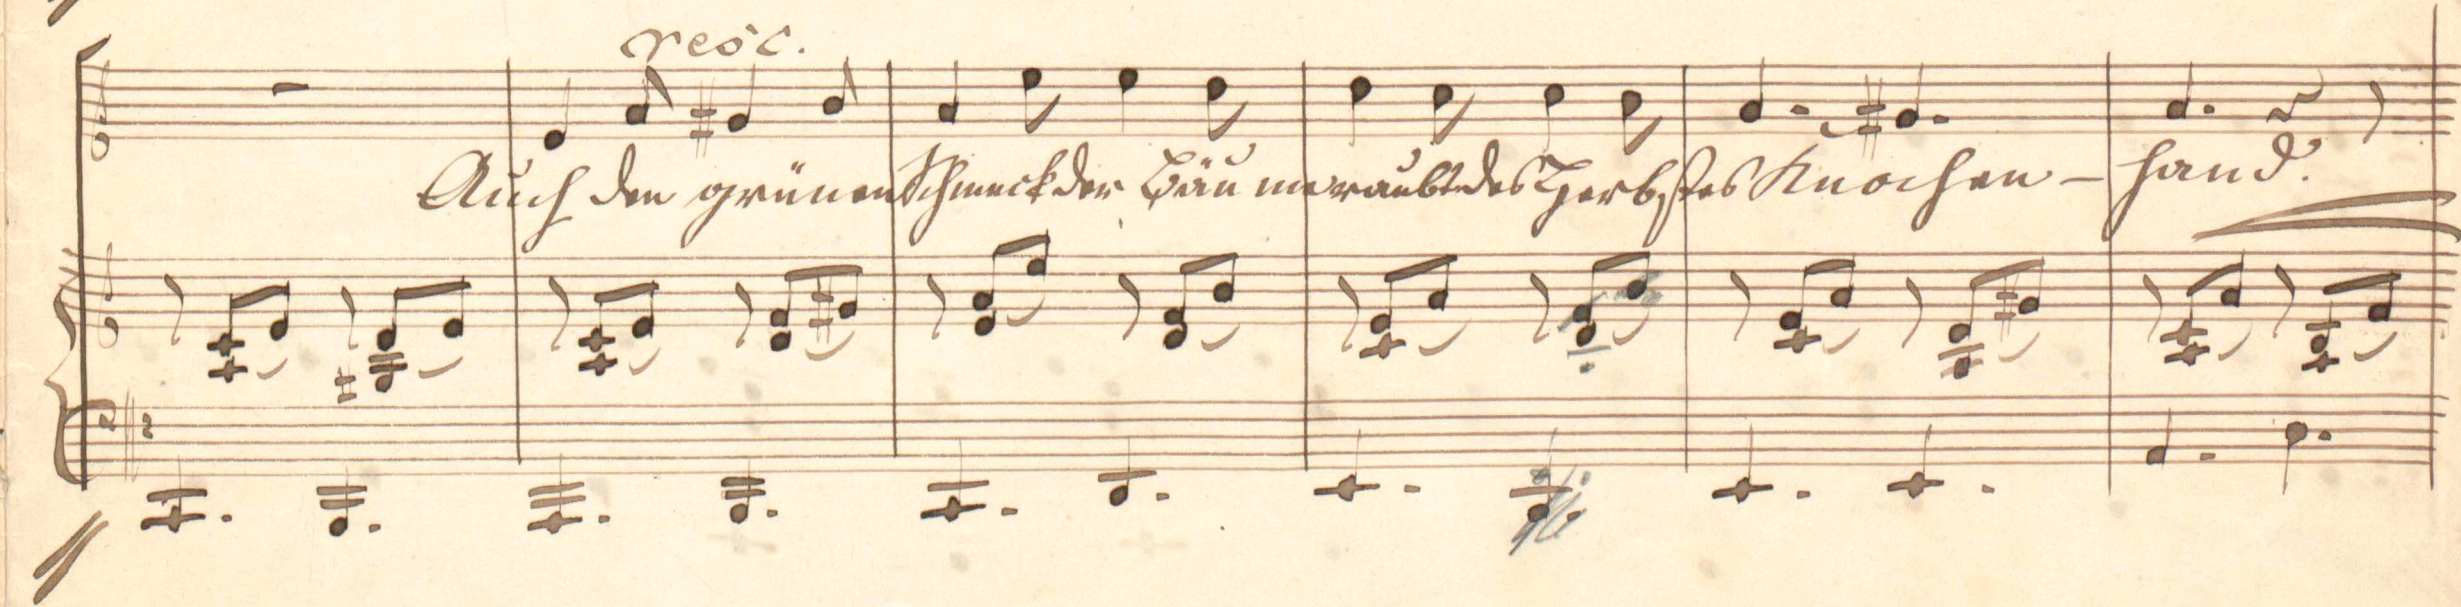 cresc.
Auch den grünen Schmuck der Bäume raubt des Herbstes Knochen - hand.